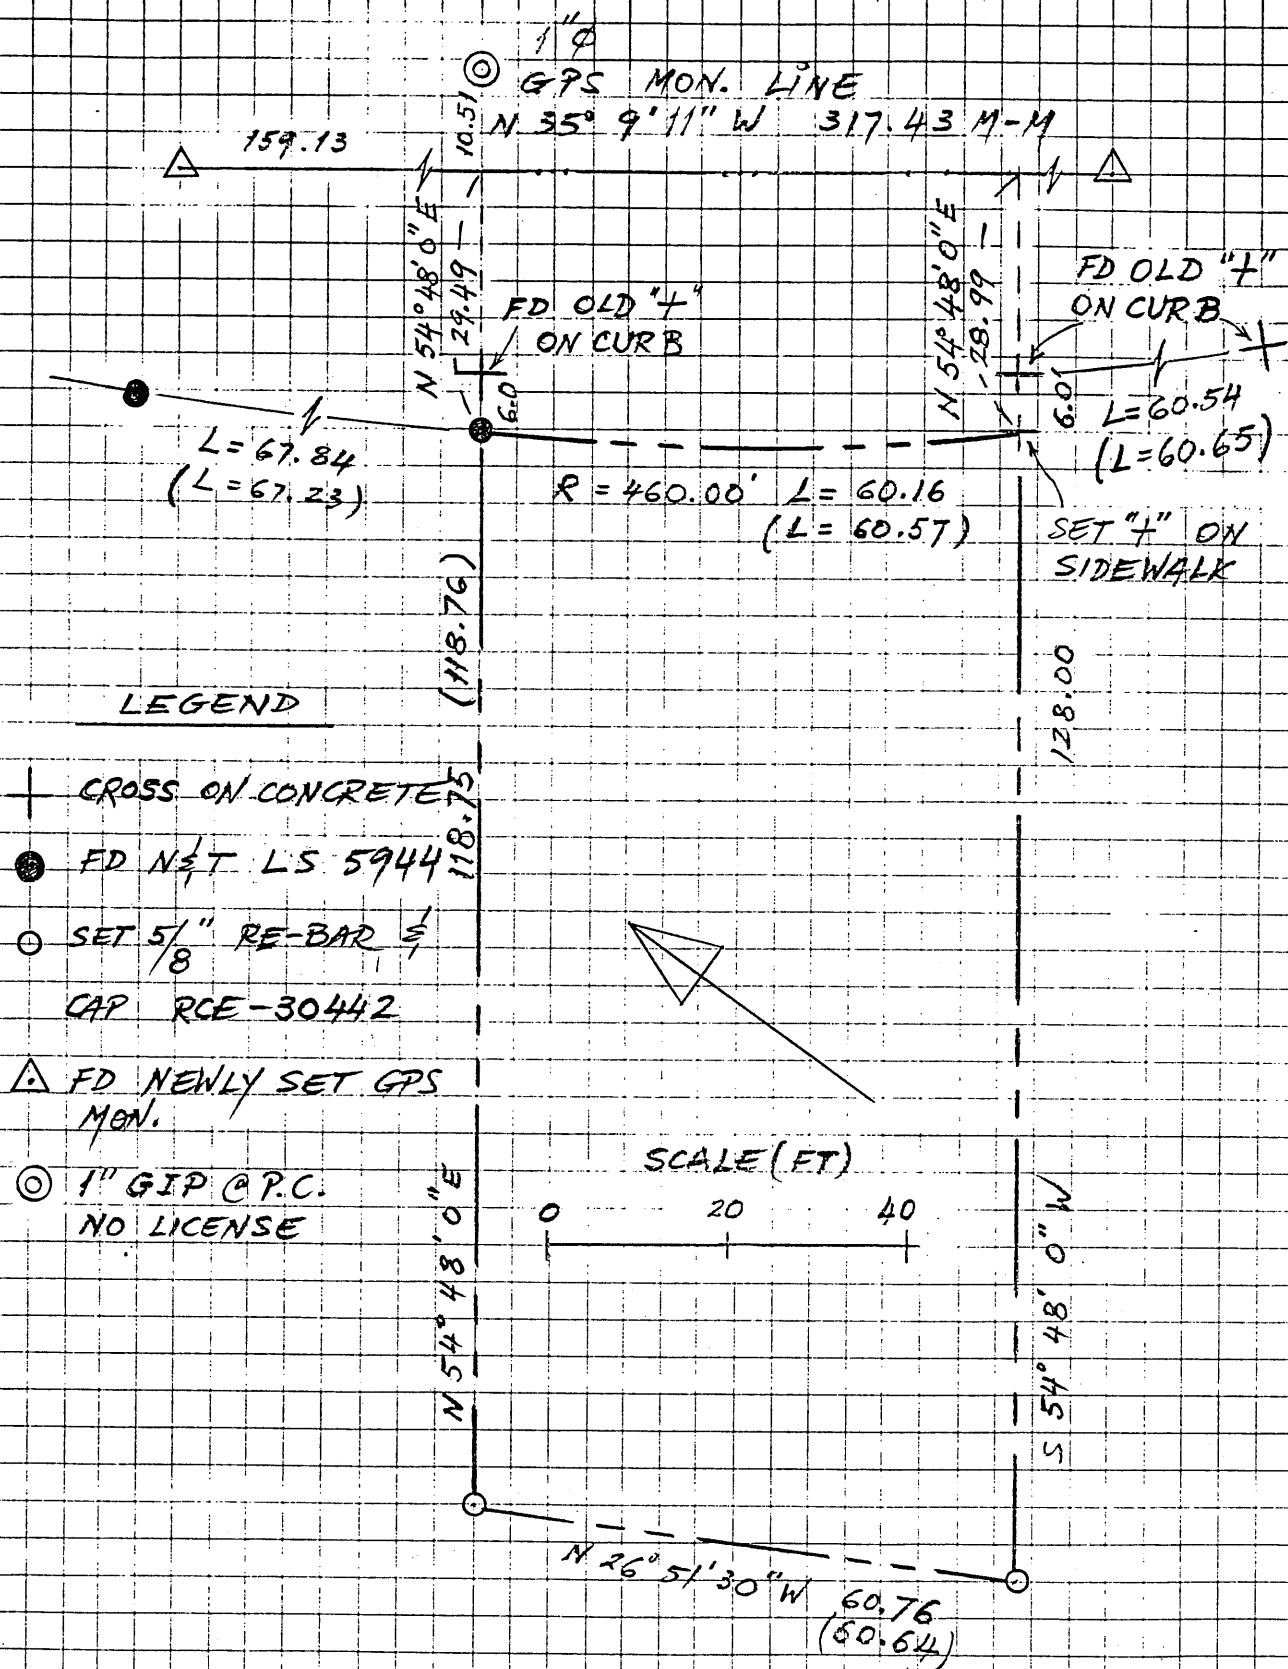 1"⌀
GPS MON. LINE
N 35° 9' 11" W 317.43 M-M
159.13
10.51
N 54° 48' 0" E
29.49
N 54° 48' 0" E
28.99
FD OLD "+"
ON CURB
FD OLD "+"
ON CURB
6.0'
6.0'
L=67.84
(L=67.23)
R=460.00' L=60.16
(L=60.57)
L=60.54
(L=60.65)
SET "+" ON
SIDEWALK
(118.76)
118.75
128.00
LEGEND
CROSS ON CONCRETE
FD N&T LS 5944
SET 5/8" RE-BAR &
CAP RCE-30442
FD NEWLY SET GPS
MON.
1" GIP @ P.C.
NO LICENSE
SCALE (FT)
0 20 40
N 54° 48' 0" E
S 54° 48' 0" W
N 26° 51' 30" W 60.76
(60.64)